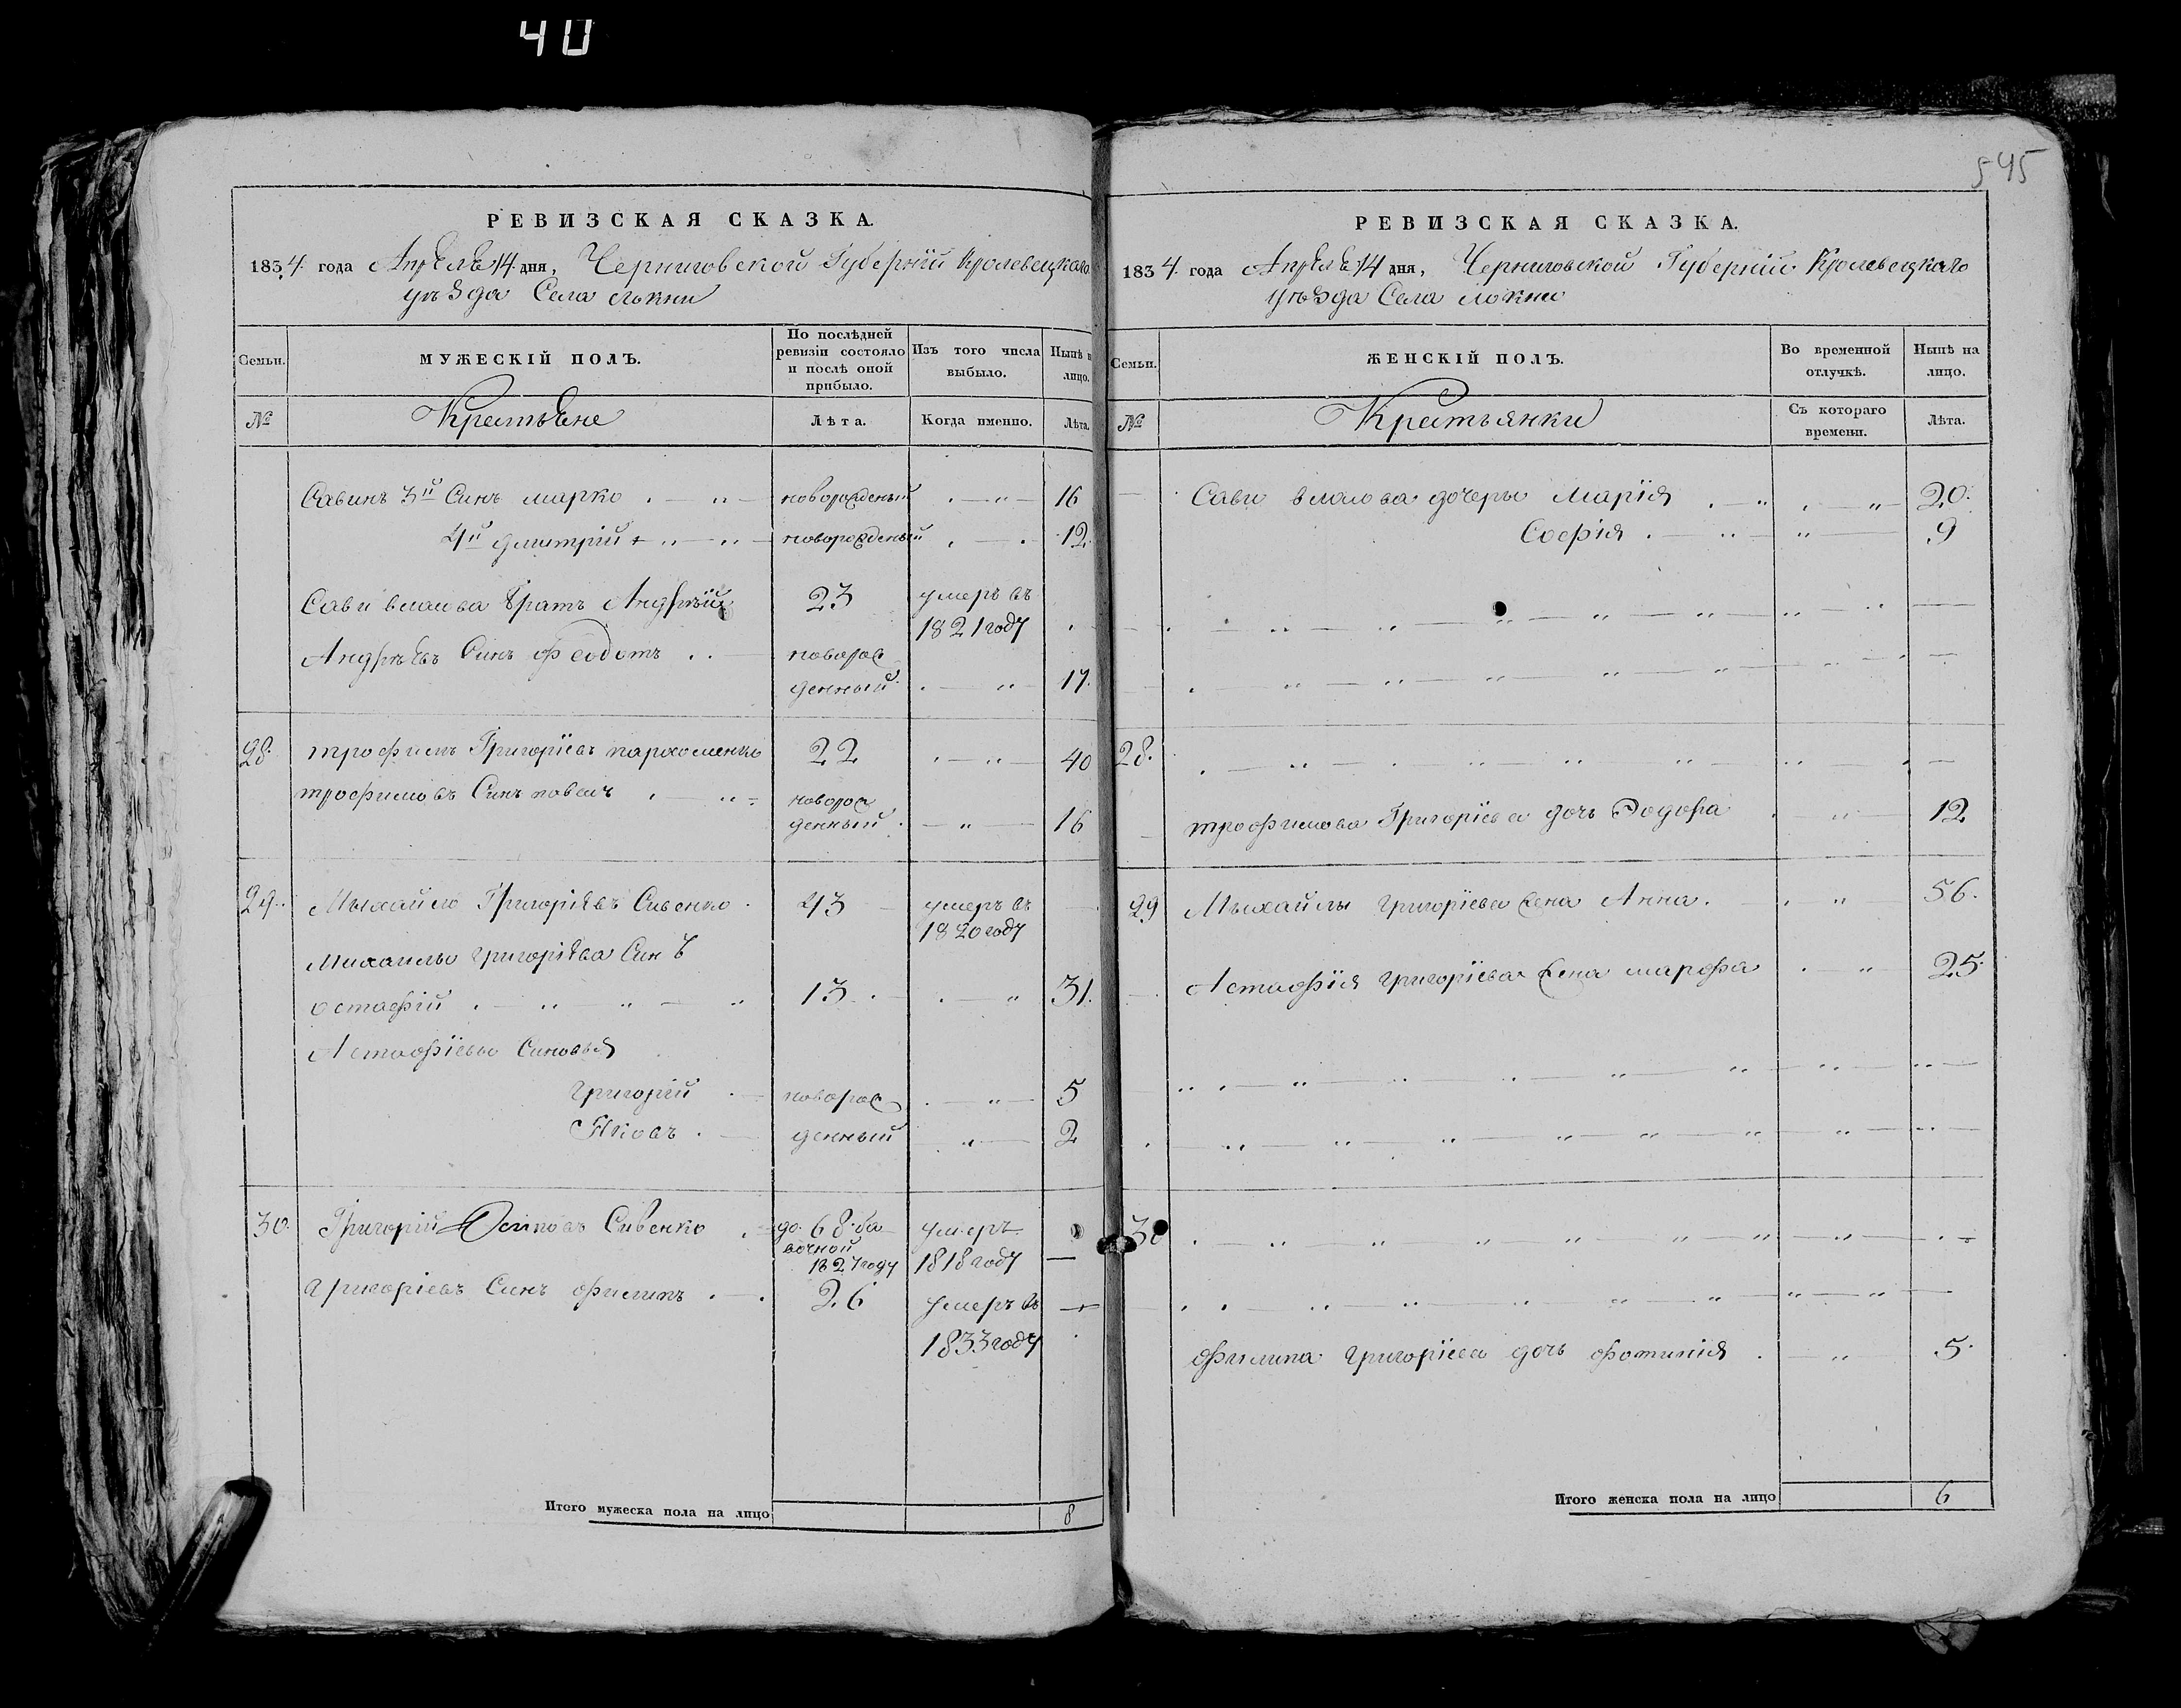 40
545
РЕВИЗСКАЯ СКАЗКА.
1834. года Апреля 14. дня, Черниговской Губернии Кролевецкаго
уѣзда Села Локни
Семьи. МУЖЕСКІЙ ПОЛЪ. По послѣдней ревизіи состояло и послѣ оной прибыло. Изъ того числа выбыло. Нынѣ на лицо.
№ Крестьяне Лѣта. Когда именно. Лѣта.
Савинъ 3й Синъ марко новорожденый 16
4й дмитрій новорожденый 12.
Сави власова братъ Андрѣй 23 умеръ въ
1821 году
Андрѣевъ Синъ Феодотъ новорос
денный 17.
28. трофимъ Григоріевъ пархоменко 22 40
трофимовъ Синъ павелъ новорос
денный 16
29. Мыхайло Григоріевъ Сивенко 43 умеръ въ
1820 году
Михаильи григоріева Синъ
остафій 13 31.
Астафіевы Синовья
григорій новорос 5
Яковъ денный 2
30. Григорій Осиповъ Сивенко до 68 ба умеръ
вочной
1827 году 1818 году
григоріевъ Синъ филипъ 26 умеръ въ
1833 году
Итого мужеска пола на лицо 8
РЕВИЗСКАЯ СКАЗКА.
1834. года Апреля 14 дня, Черниговской Губерніи Кролевецкаго
уѣзда Села Локни
Семьи. ЖЕНСКІЙ ПОЛЪ. Во временной отлучкѣ. Нынѣ на лицо.
№ Крестьянки Съ котораго времени. Лѣта.
Сави власова дочеры Марія 20.
Софія 9
28.
трофимова Григоріева дочъ Ѳодора 12
29 Мыхайлы григоріева жена Анна. 56.
Астафія григоріева жена марфа 25.
30
филипа григоріева дочъ фотинія 5.
Итого женска пола на лицо 6